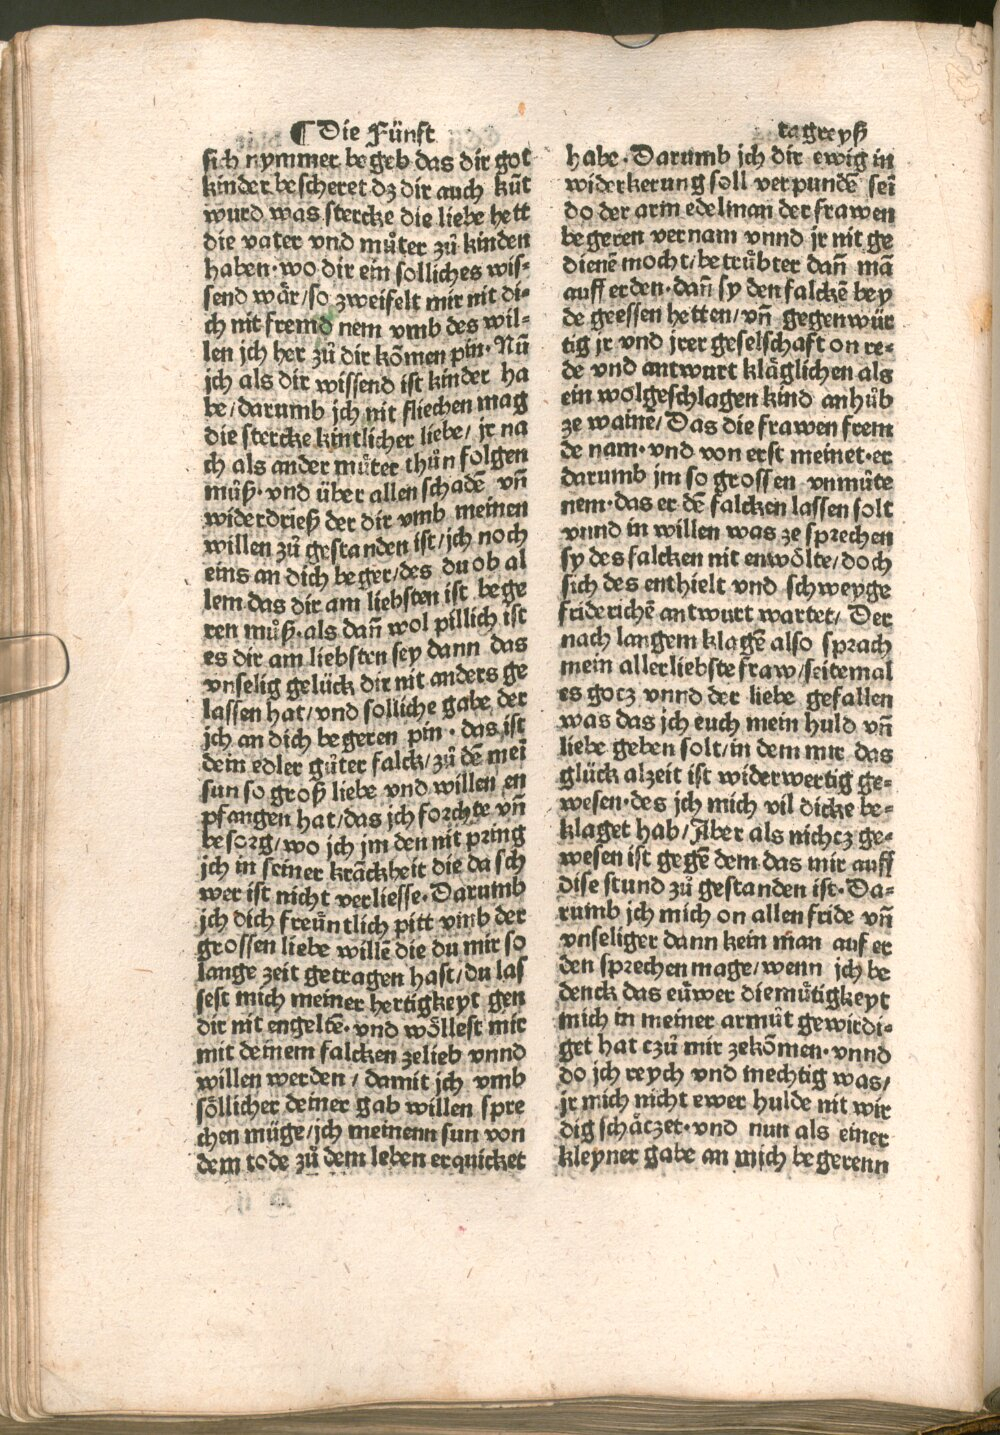 ¶ Die Fünft
sich nymmer begeb das dir got
kinder bescheret dz dir auch kūt
wurd was stercke die liebe hett
die vater vnd muͤter zuͦ kinden
haben·wo dir ein solliches wis⸗
send waͤr/so zweifelt mir nit di⸗
ch nit fremd nem vmb des wil⸗
len jch her zuͦ dir kōmen pin·Nū
jch als dir wissend ist kinder ha
be/darumb jch nit fliechen mag
die stercke kintlicher liebe/jr na
ch als ander muͤter thuͦn folgen
muͦß·vnd über allen schadē vn̄
widerdrieß der dir vmb meinen
willen zuͦ gestanden ist/jch noch
eins an dich beger/des du ob al
lem das dir am liebsten ist bege
ren muͦß·als dan̄ wol pillich ist
es dir am liebsten sey dann das
vnselig gelück dir nit anders ge
lassen hat/vnd solliche gabe der
jch an dich begeren pin·das ist
dein edler guͦter falck/zuͦ dē mei
sun so groß liebe vnd willen en
pfangen hat/das jch forchte vn̄
besorg/wo jch jm den nit pring
jch in seiner kraͤckheit die da sch
wer ist nicht verliesse·Darumb
jch dich freüntlich pitt vmb der
grossen liebe willē die du mir so
lange zeit getragen hast/du las
sest mich meiner hertigkeyt gen
dir nit engeltē·vnd woͤllest mir
mit deinem falcken zelieb vnnd
willen werden/damit jch vmb
soͤllicher deiner gab willen spre
chen müge/jch meinenn sun von
dem tode zuͦ dem leben erquicket
tagreyß
habe·Darumb jch dir ewig in
widerkerung soll verpundē sei
do der arm edelman der frawen
begeren vernam vnnd jr nit ge
dienē mocht/betruͤbter dan̄ mā
auff erden·dan̄ sy den falckē bey
de geessen hetten/vn̄ gegenwür
tig jr vnd jrer geselschaft on re⸗
de vnd antwurt klaͤglichen als
ein wolgeschlagen kind anhuͦb
ze waine/Das die frawen frem
de nam·vnd von erst meinet·er
darumb jm so grossen vnmuͦte
nem·das er dē falcken lassen solt
vnnd in willen was ze sprechen
sy des falcken nit enwoͤlte/doch
sich des enthielt vnd schweyge
friderichē antwurt wartet/Der
nach langem klagē also sprach
mein allerliebste fraw/seitemal
es gotz vnnd der liebe gefallen
was das jch euch mein huld vn̄
liebe geben solt/in dem mir das
glück alzeit ist widerwertig ge⸗
wesen·des jch mich vil dicke be⸗
klaget hab/Aber als nichcz ge⸗
wesen ist gegē dem das mir auff
dise stund zuͦ gestanden ist·Da⸗
rumb jch mich on allen fride vn̄
vnseliger dann kein man auf er
den sprechen mage/wenn jch be
denck das euͤwer diemuͤtigkeyt
mich in meiner armuͦt gewirdi⸗
get hat czuͦ mir zekōmen·vnnd
do jch reych vnd mechtig was/
jr mich nicht ewer hulde nit wir
dig schaͤczet·vnd nun als einer
kleyner gabe an mich begerenn